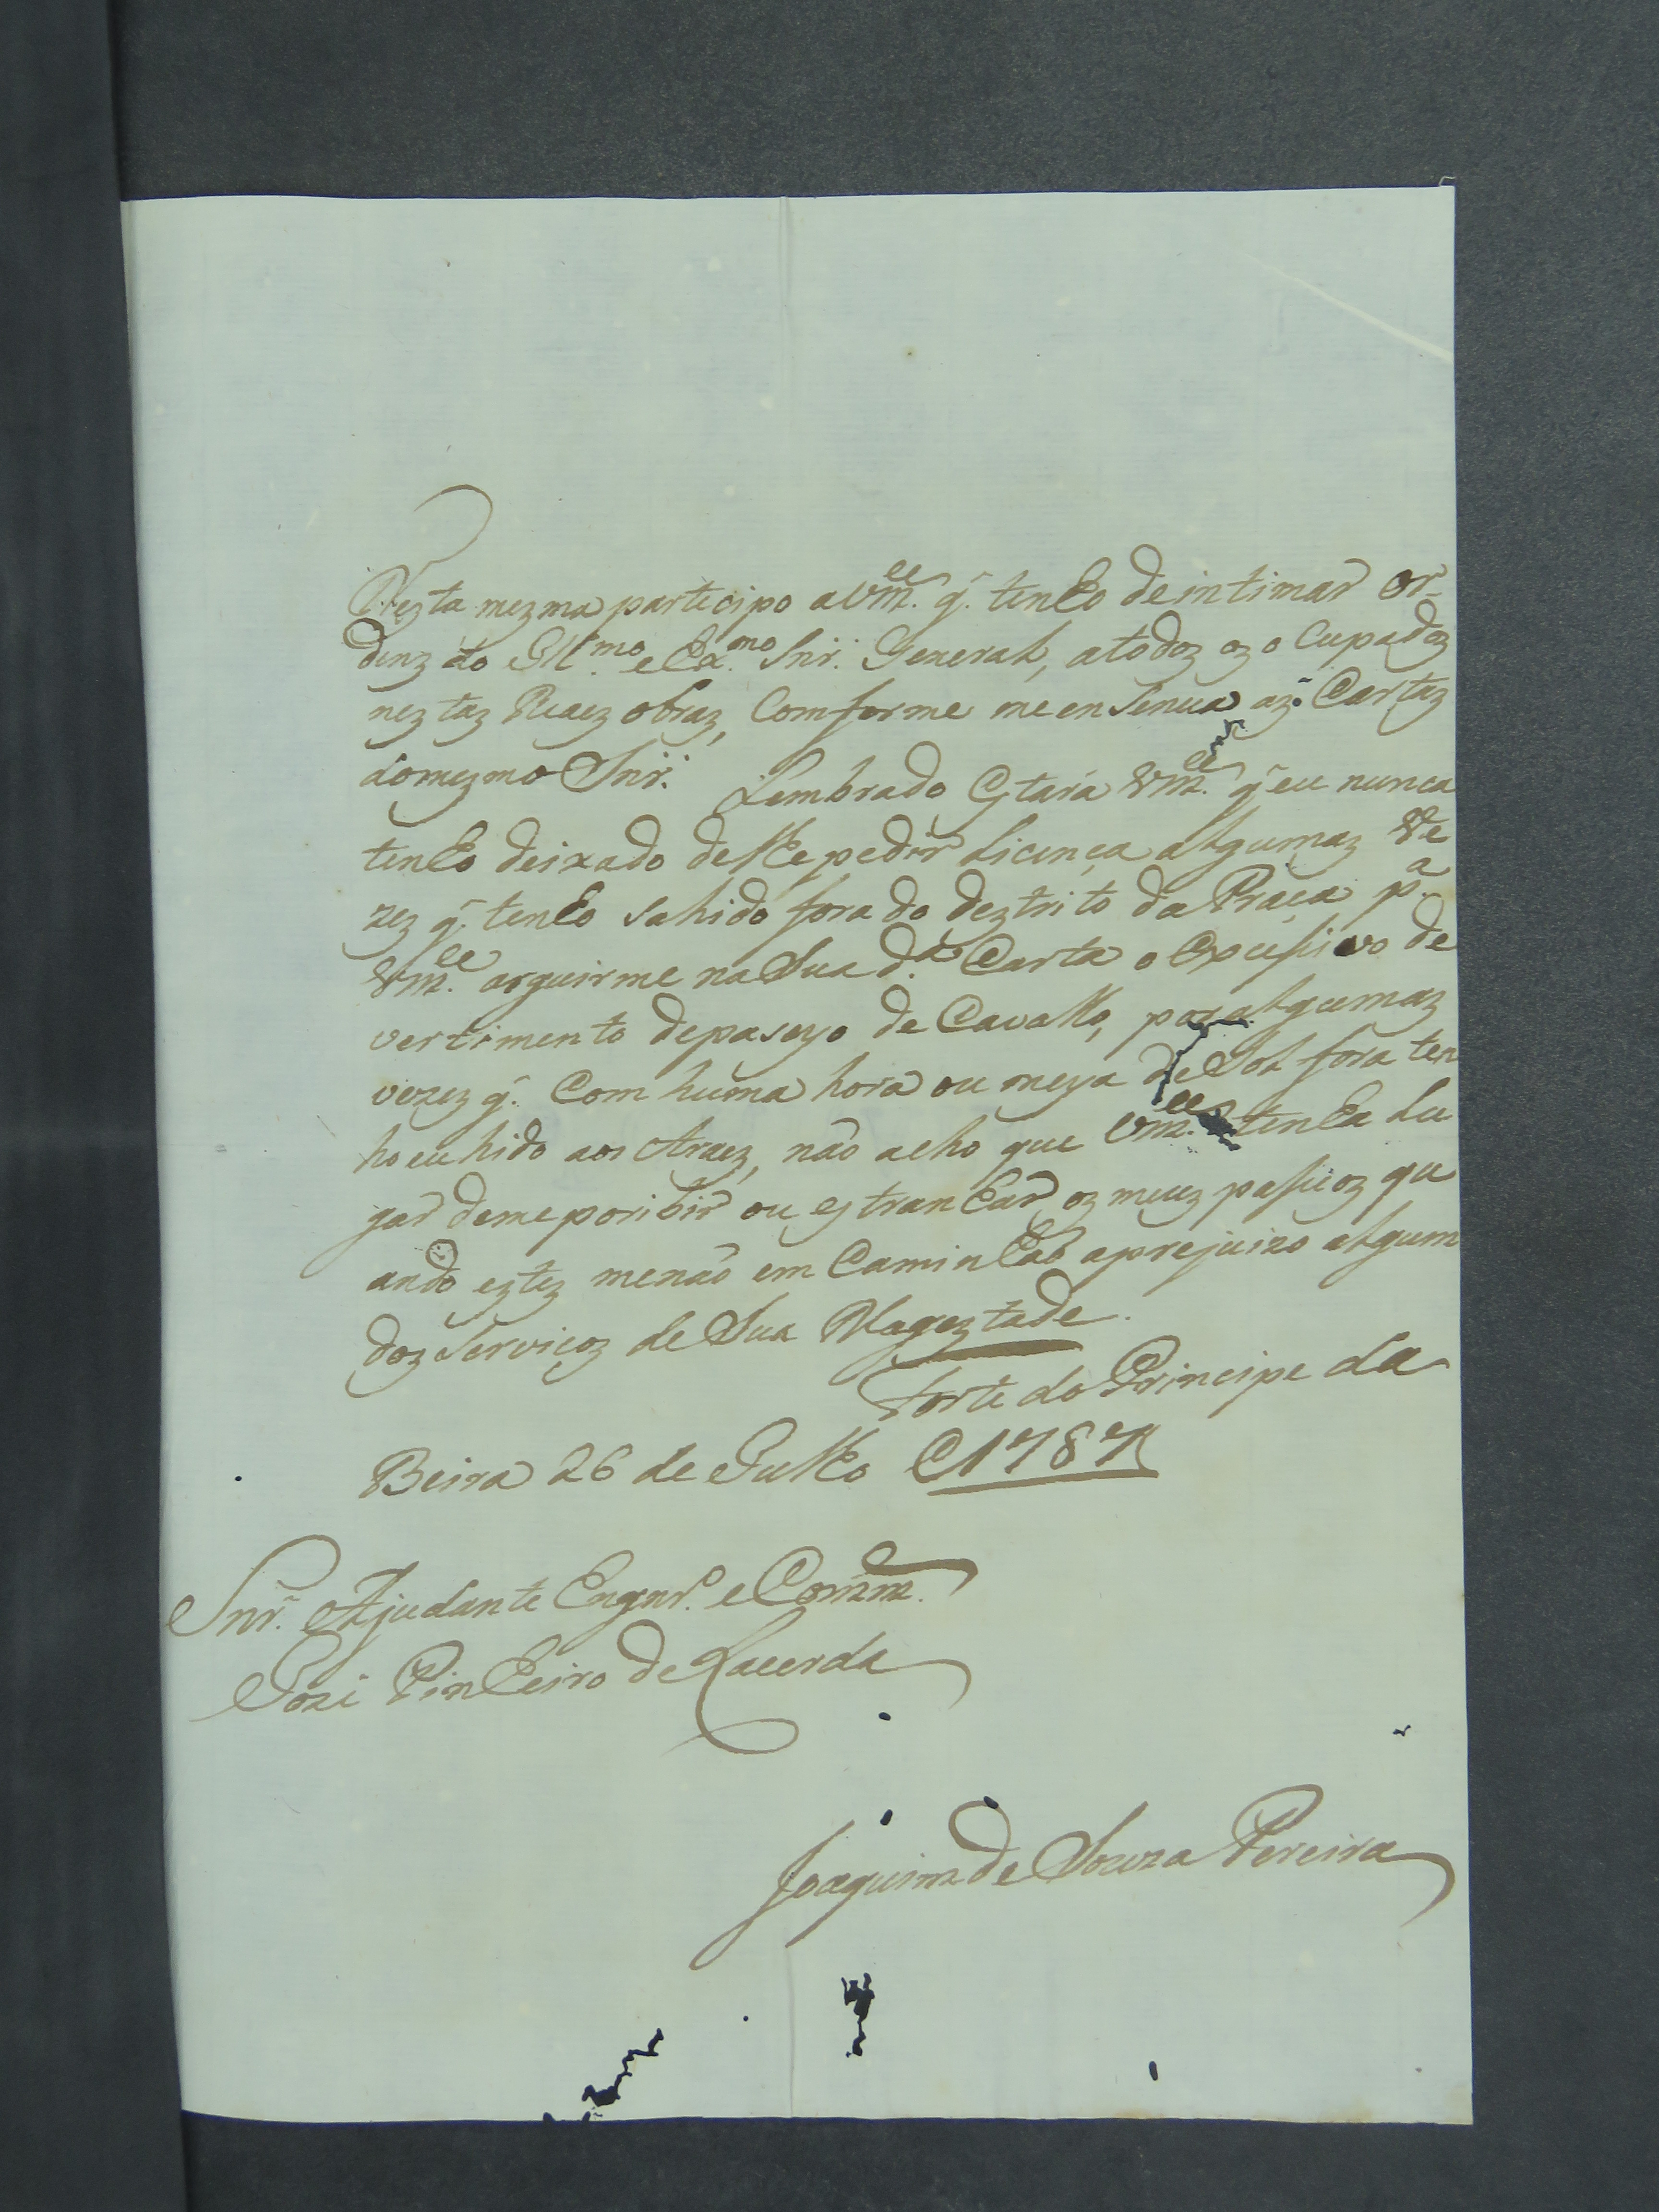 Nezta mezma participo a Vm.ce q̃. tenho de intimar or-
denz do Ill.mo e Ex.mo Snr. General, a todoz oz o Cupadoz
neztaz Reaez obraz, Comforme me ensenua az. Cartaz
do mezmo Snr. Lembrado Estará Vm.ce q̃ eu nunca
tenho deixado de lhe pedir Licença algumaz Ve
zez q̃. tenho sahido fora do deztrito da Praça p.a
Vm.ce arguirme na Sua d.a Carta o Excessivo de
vertimento de paseyo de Cavallo, por algumaz
vezez q̃. Com huma hora ou meya de Sol fora ten
ho eu hido aos Araez, não acho que Vm.ce tenha Lu
gar de me poribir ou estranhar oz meuz passioz qu
ando eztez me não em Caminhão aprejuizo algum
doz Serviçoz de Sua Mageztade.
Forte do Principe da
Beira 26 de Julho @ 1787
Snr. Ajudante Engnr.o e Comm.e
Jozé Pinheiro de Lacerda
Joaquim de Souza Pereira